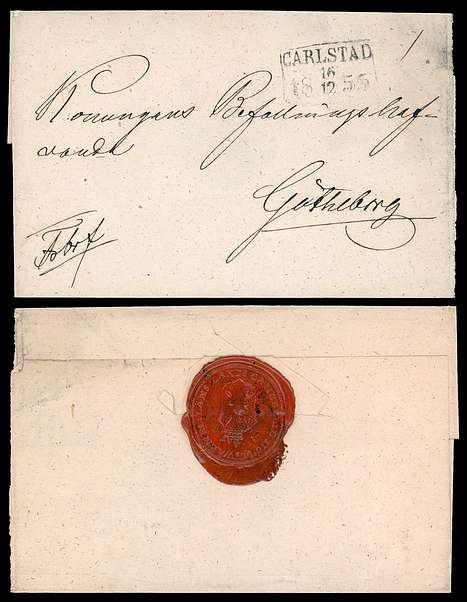 CARLSTAD
16
18 12 55
Konungens Befallningshaf-
vande
Götheborg
Fbrf